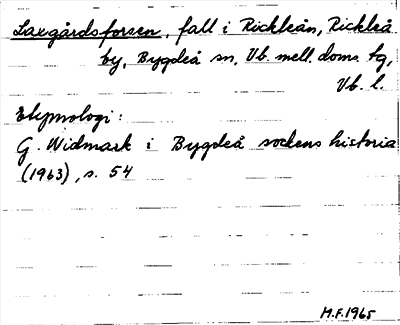 Laxgårdsforsen, fall i Rickleån, Rickleå
by, Bygdeå sn, Vb. mell. doms. tg,
Vb. l.
Etymologi:
G. Widmark i Bygdeå sockens historia
(1963), s. 54
M.F. 1965